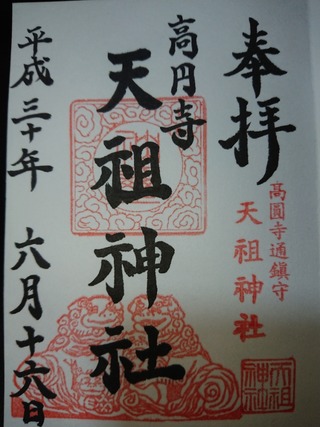 奉拝
髙圓寺通鎮守
天祖神社
天祖
神社
高円寺
天祖神社
平成三十年 六月十六日